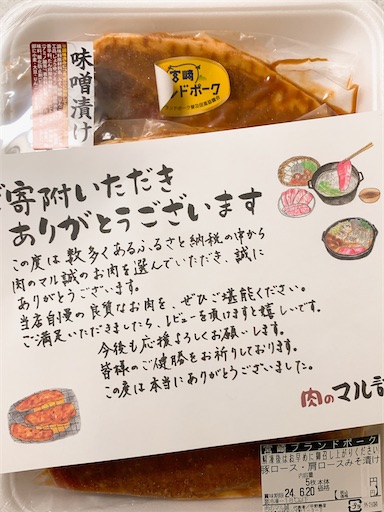 味噌漬け
宮崎
ンドポーク
ご寄附いただき
ありがとうございます
この度は数多くあるふるさと納税の中から
肉のマル誠のお肉を選んでいただき、誠に
ありがとうございます。
当店自慢の良質なお肉を、ぜひご堪能ください。
ご満足いただきましたら、レビューを頂けますと嬉しいです。
今後も応援よろしくお願いします。
皆様のご健勝をお祈りしております。
この度は本当にありがとうございました。
肉のマル誠
宮崎ブランドポーク
解凍後はお早めに御召し上がりください
豚ロース・肩ロースみそ漬け
内容量
5枚 本体
価格
賞味期限 24. 6.20
円